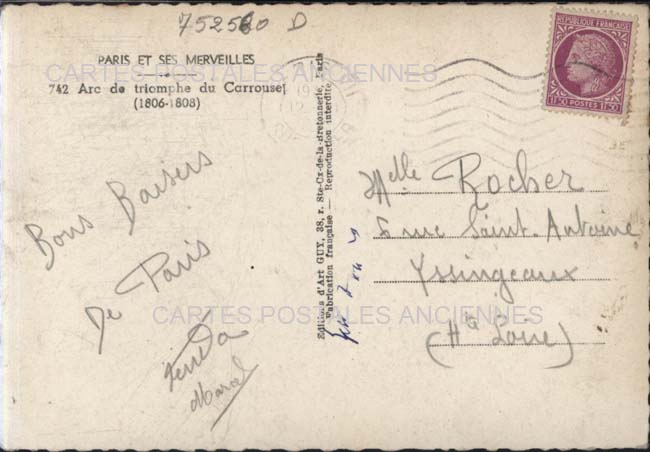 752560 D
PARIS ET SES MERVEILLES
CARTES POSTALES ANCIENNES
742 Arc de triomphe du Carrousel
(1806-1808)
Bons Baisers
De Paris
Marcel
Editions d'Art GUY, 38, r. Ste-Cx-de-la-Bretonnerie, Paris
Fabrication française — Reproduction interdite
REPUBLIQUE FRANÇAISE
1F50 POSTES 1F50
Melle Rocher
rue Saint-Antoine
Yssingeaux
(Hte Loire)
CARTES POSTALES ANCIENNES